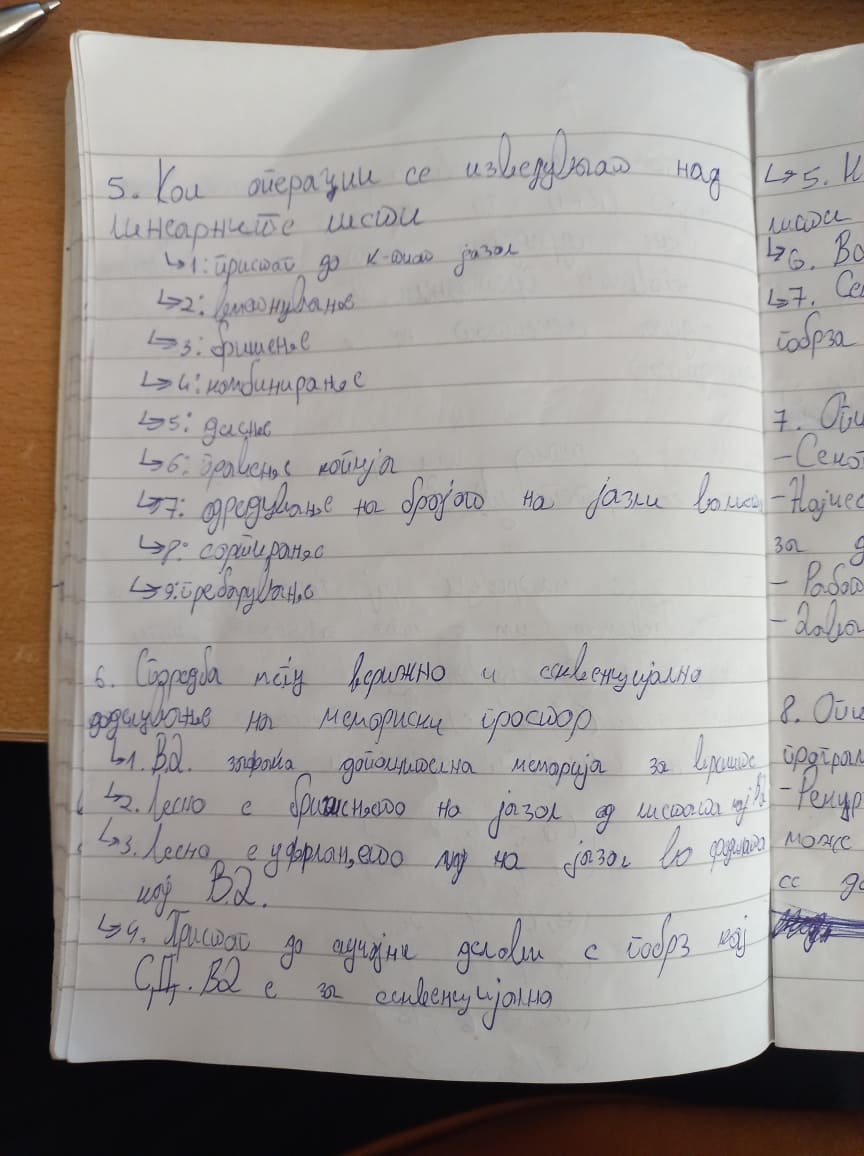 5. Кои операции се изведуваат над
линеарните листи
↳1: пристап до к-тиот јазол
↳2: вметнување
↳3: бришење
↳4: комбинирање
↳5: делење
↳6: правење копија
↳7: одредување на бројот на јазли во листа
↳8: сортирање
↳9: пребарување
6. Споредба меѓу верижно и секвенцијално
доделување на мемориски простор
↳1. ВД. зафаќа дополнителна меморија за врските
↳2. Лесно е бришењето на јазол од листата кај ВД
↳3. Лесно е уфрлањето на јазол во
кај ВД.
↳4. Пристап до случајни делови е побрз кај
СД. ВД е за секвенцијална
↳5. И
листи
↳6. Во
↳7. Се
побрза
7. Опи
- Секо
- Најчес
за д
- Работ
8. Опи
програм
- Рекур
може
се до